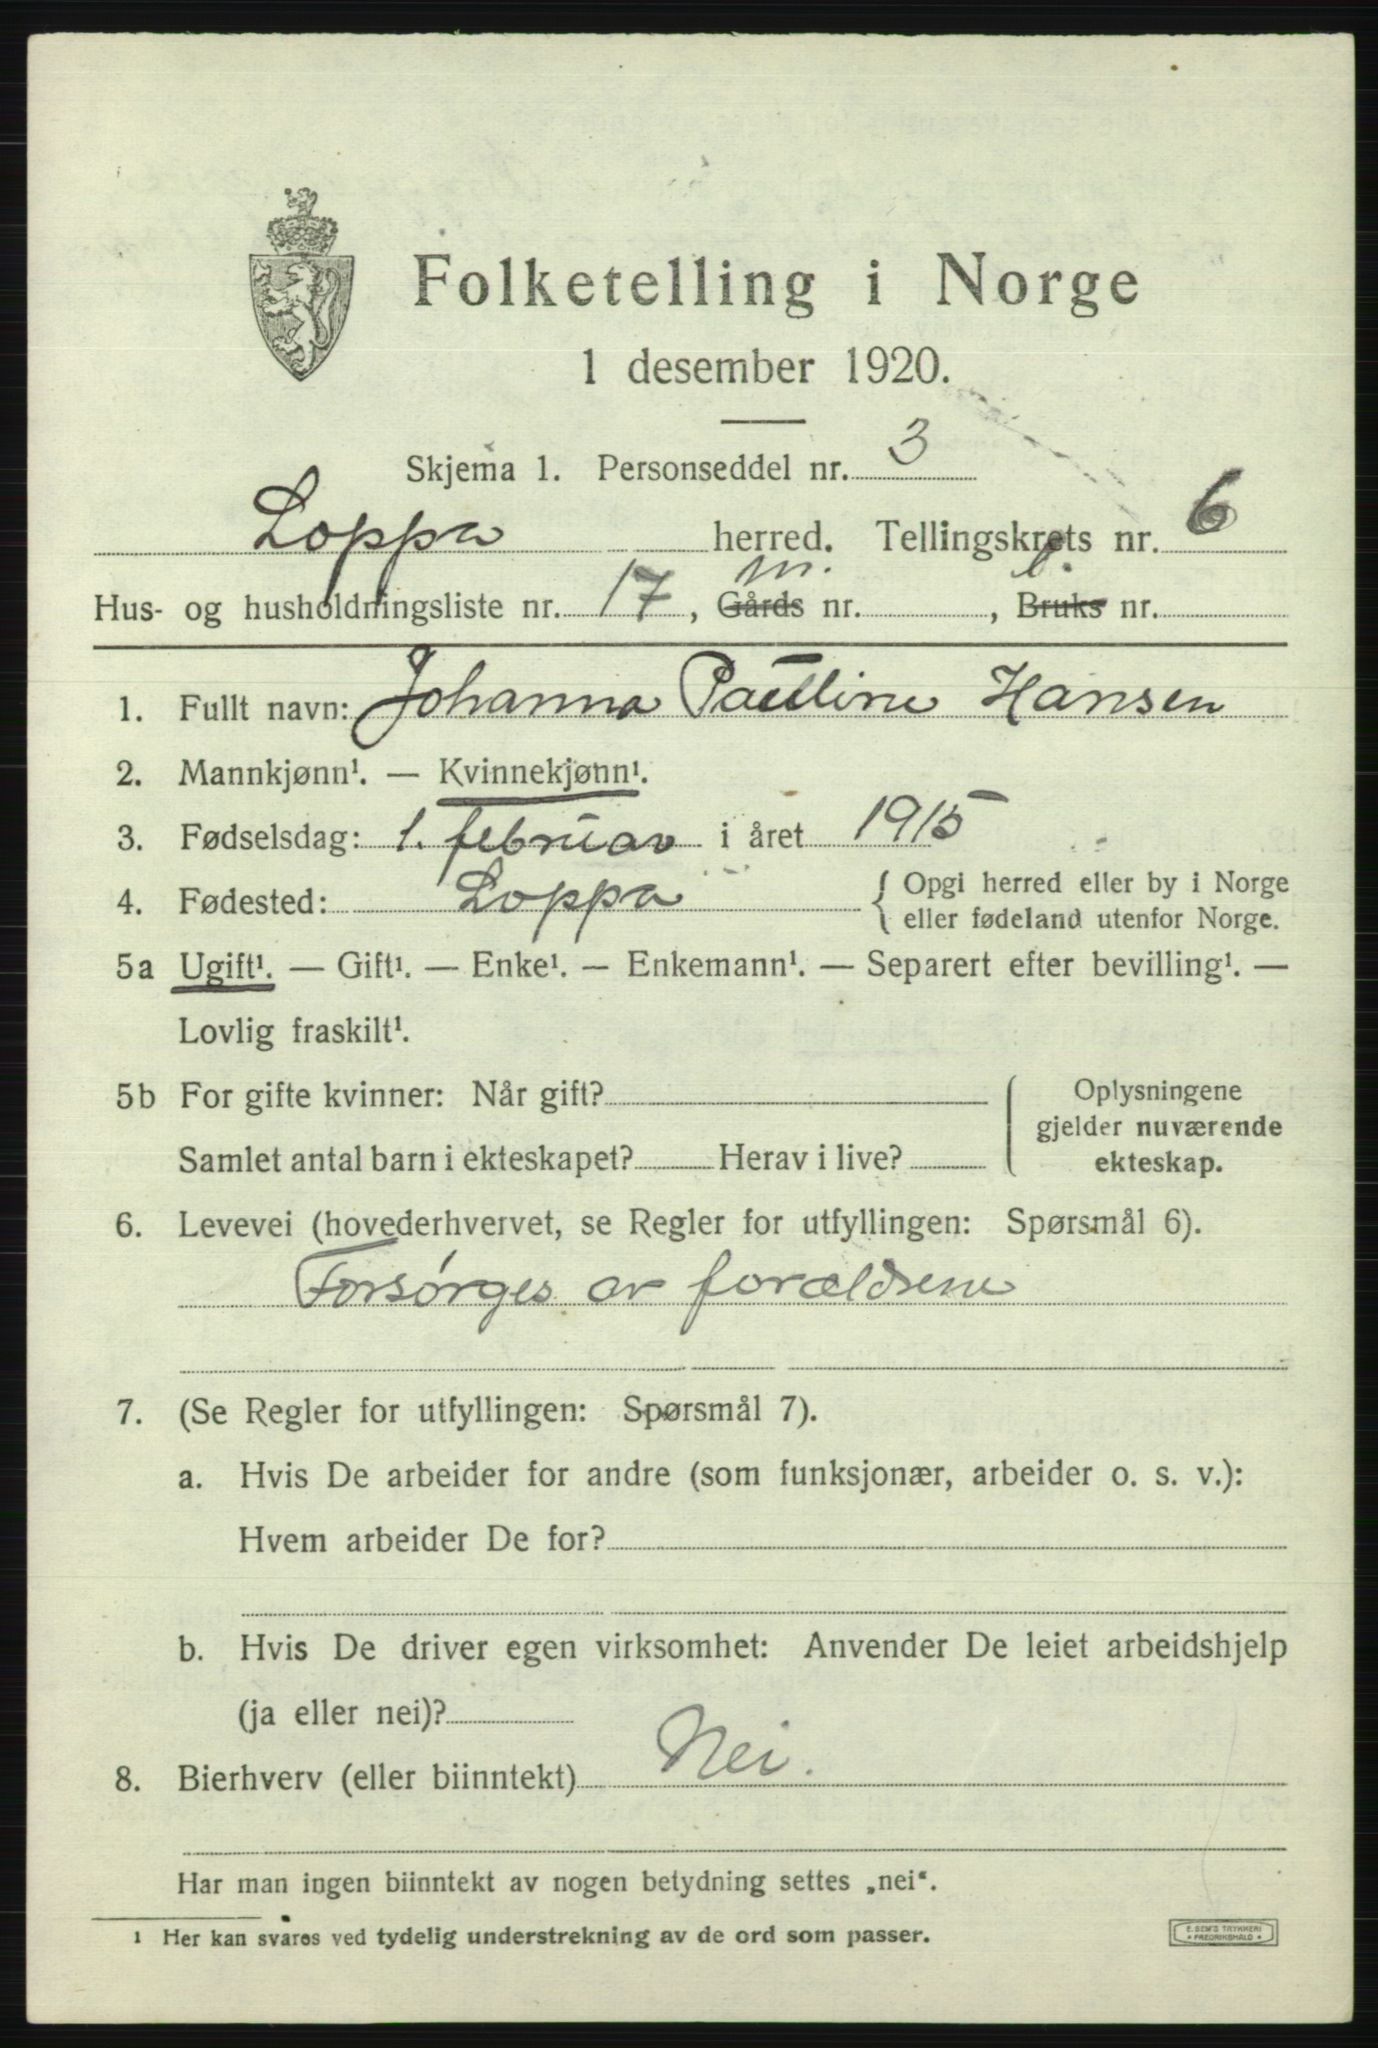 Folketelling i Norge
1 desember 1920.
Skjema 1. Personseddel nr. 3
Loppa herred. Tellingskrets nr. 6
m. l.
Hus- og husholdningsliste nr. 17, Gårds nr. , Bruks nr.
1. Fullt navn: Johanna Pauline Hansen
2. Mannkjønn¹. — Kvinnekjønn¹.
3. Fødselsdag: 1. februar i året 1915
4. Fødested: Loppa { Opgi herred eller by i Norge
eller fødeland utenfor Norge.
5a Ugift¹. — Gift¹. — Enke¹. — Enkemann¹. — Separert efter bevilling¹. —
Lovlig fraskilt¹.
5b For gifte kvinner: Når gift? Oplysningene
gjelder nuværende
Samlet antal barn i ekteskapet? Herav i live? ekteskap.
6. Levevei (hovederhvervet, se Regler for utfyllingen: Spørsmål 6).
Forsørges av forældrene
7. (Se Regler for utfyllingen: Spørsmål 7).
a. Hvis De arbeider for andre (som funksjonær, arbeider o. s. v.):
Hvem arbeider De for?
b. Hvis De driver egen virksomhet: Anvender De leiet arbeidshjelp
(ja eller nei)?
8. Bierhverv (eller biinntekt) Nei.
Har man ingen biinntekt av nogen betydning settes „nei“.
1 Her kan svares ved tydelig understrekning av de ord som passer.
E. SEM'S TRYKKERI
FREDRIKSHALD